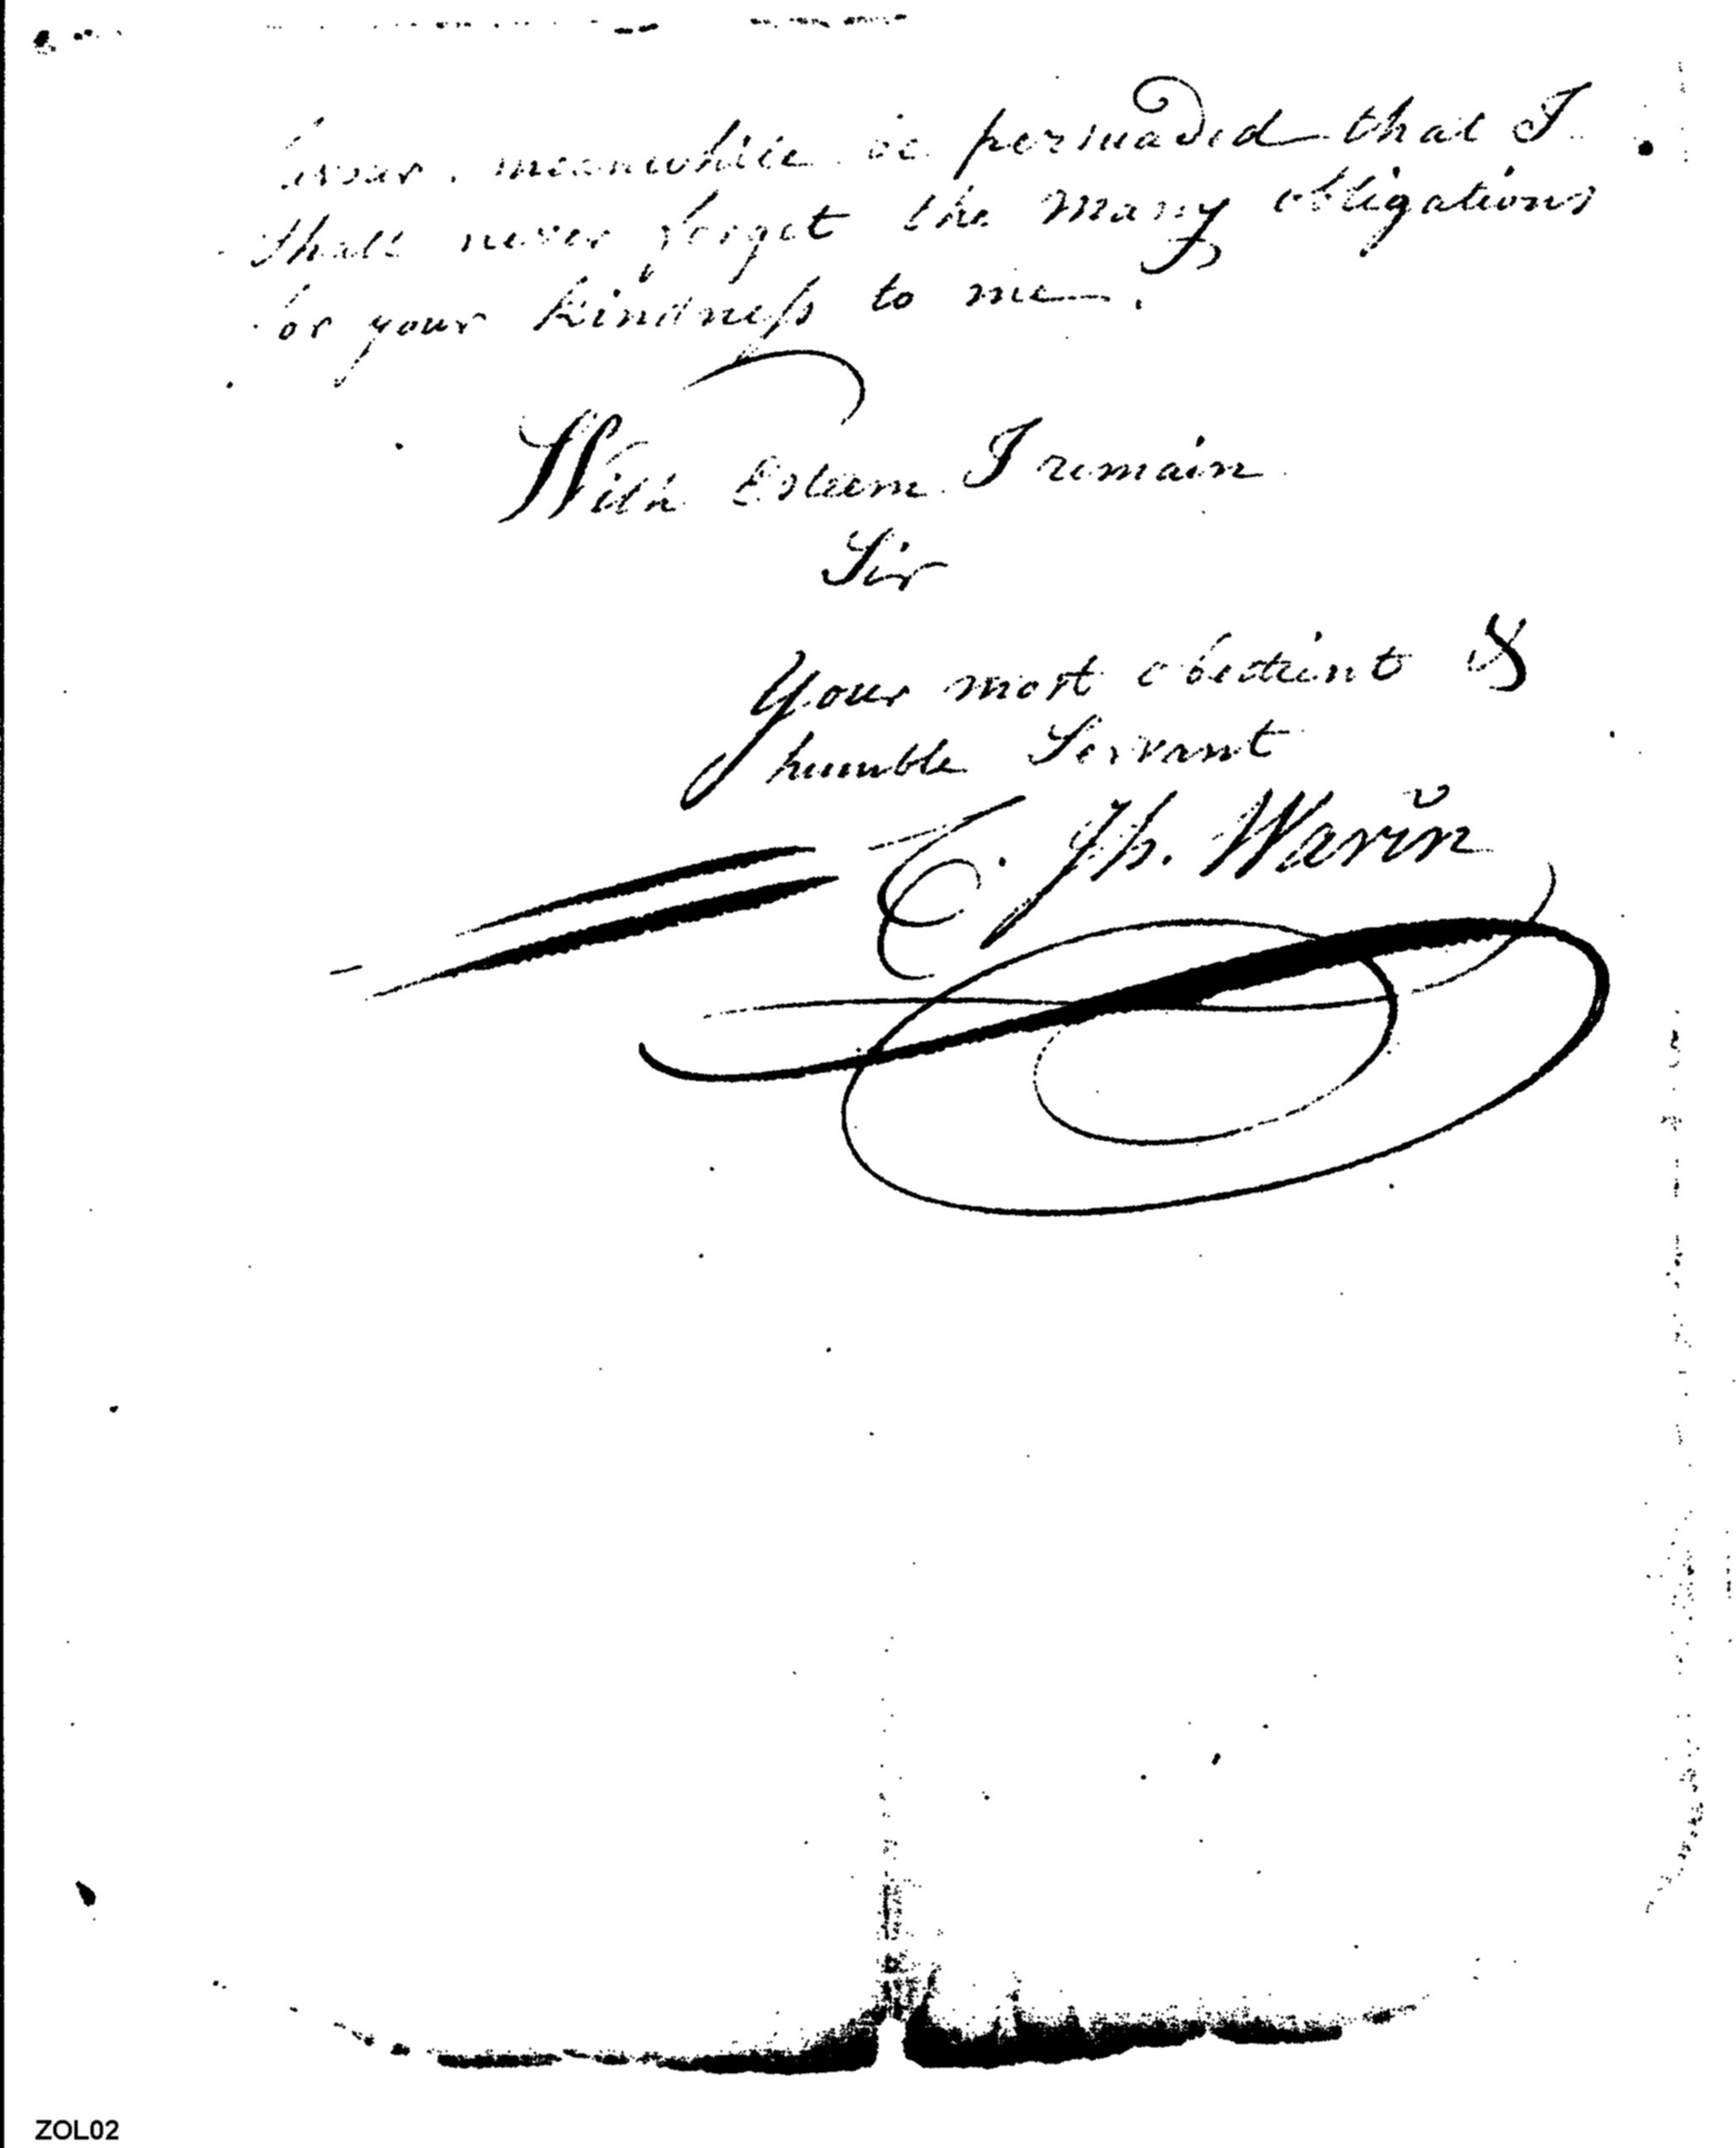 favour. meanwhile be persuaded that I
shall never forget the many obligations
for your kindneſs to me.
With Esteem I remain
Sir
Your most obedient &
humble Servant
Jh. Warin
ZOL02